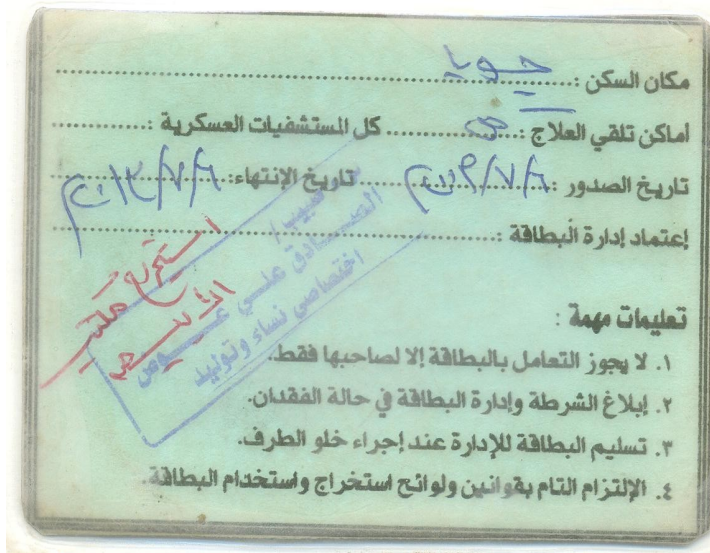 مكان السكن : جوبا
أماكن تلقي العلاج : كل المستشفيات العسكرية :
تاريخ الصدور : ٢٠٠٩/٧/٨ تاريخ الإنتهاء: ٢٠١٣/٧/٨
إعتماد إدارة البطاقة :
طبيب /
الصادق علي عوض
اختصاصي نساء وتوليد
تعليمات مهمة :
١. لا يجوز التعامل بالبطاقة إلا لصاحبها فقط.
٢. إبلاغ الشرطة وإدارة البطاقة في حالة الفقدان.
٣. تسليم البطاقة للإدارة عند إجراء خلو الطرف.
٤. الإلتزام التام بقوانين ولوائح استخراج واستخدام البطاقة.